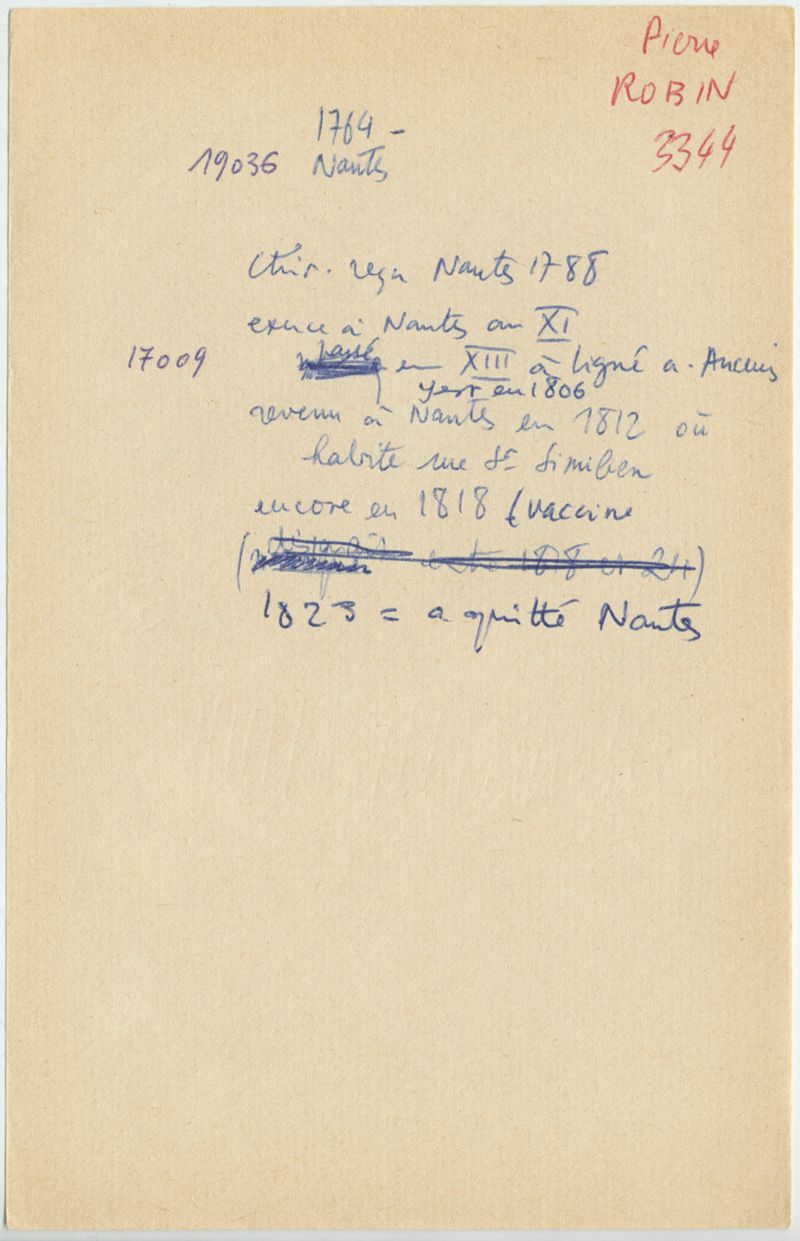 Pierre
ROBIN
3344
1764 -
19036 Nantes
Chir. reçu Nantes 1788
exerce à Nantes an XI
passé
17009 en XIII à Ligné a. Ancenis
y est en 1806
revenu à Nantes en 1812 où
habite rue St Similien
encore en 1818 (vaccine
(disparait entre 1818 et 24)
1823 = a quitté Nantes